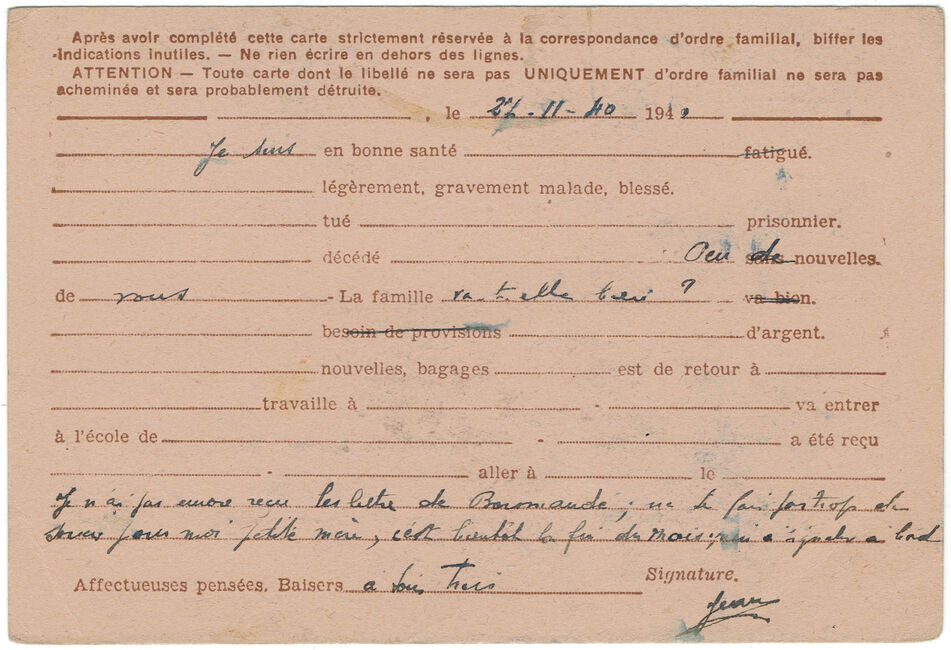 Après avoir complété cette carte strictement réservée à la correspondance d'ordre familial, biffer les
indications inutiles. — Ne rien écrire en dehors des lignes.
ATTENTION — Toute carte dont le libellé ne sera pas UNIQUEMENT d'ordre familial ne sera pas
acheminée et sera probablement détruite.
, le 27-11-40 194
Je suis en bonne santé fatigué.
légèrement, gravement malade, blessé.
tué prisonnier.
décédé Peu de sans nouvelles.
de vous - La famille va-t-elle bien ? va bien.
besoin de provisions d'argent.
nouvelles, bagages est de retour à
travaille à - va entrer
à l'école de - a été reçu
- aller à le
Je n'ai pas encore reçu les lettre de ; ne te fais pas trop de
soucis pour moi petite mère, c'est bientôt la fin du mois, rien à signaler à bord
Affectueuses pensées. Baisers à tous Trois Signature.
Jean